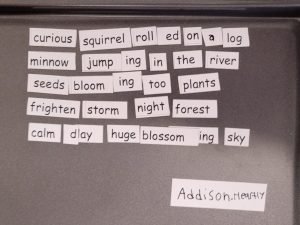 curious squirrel roll ed on a log
minnow jump ing in the river
seeds bloom ing too plants
frighten storm night forest
calm day huge blossom ing sky
Addison